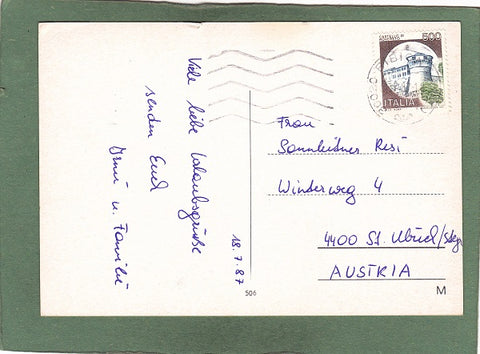 Viele liebe Urlaubsgrüße
senden Euch
u. Familie
18.7.87
500
ITALIA
Frau
Sonnleitner Resi
Winderweg 4
4400 St. Ulrich/Steyr
AUSTRIA
506
M